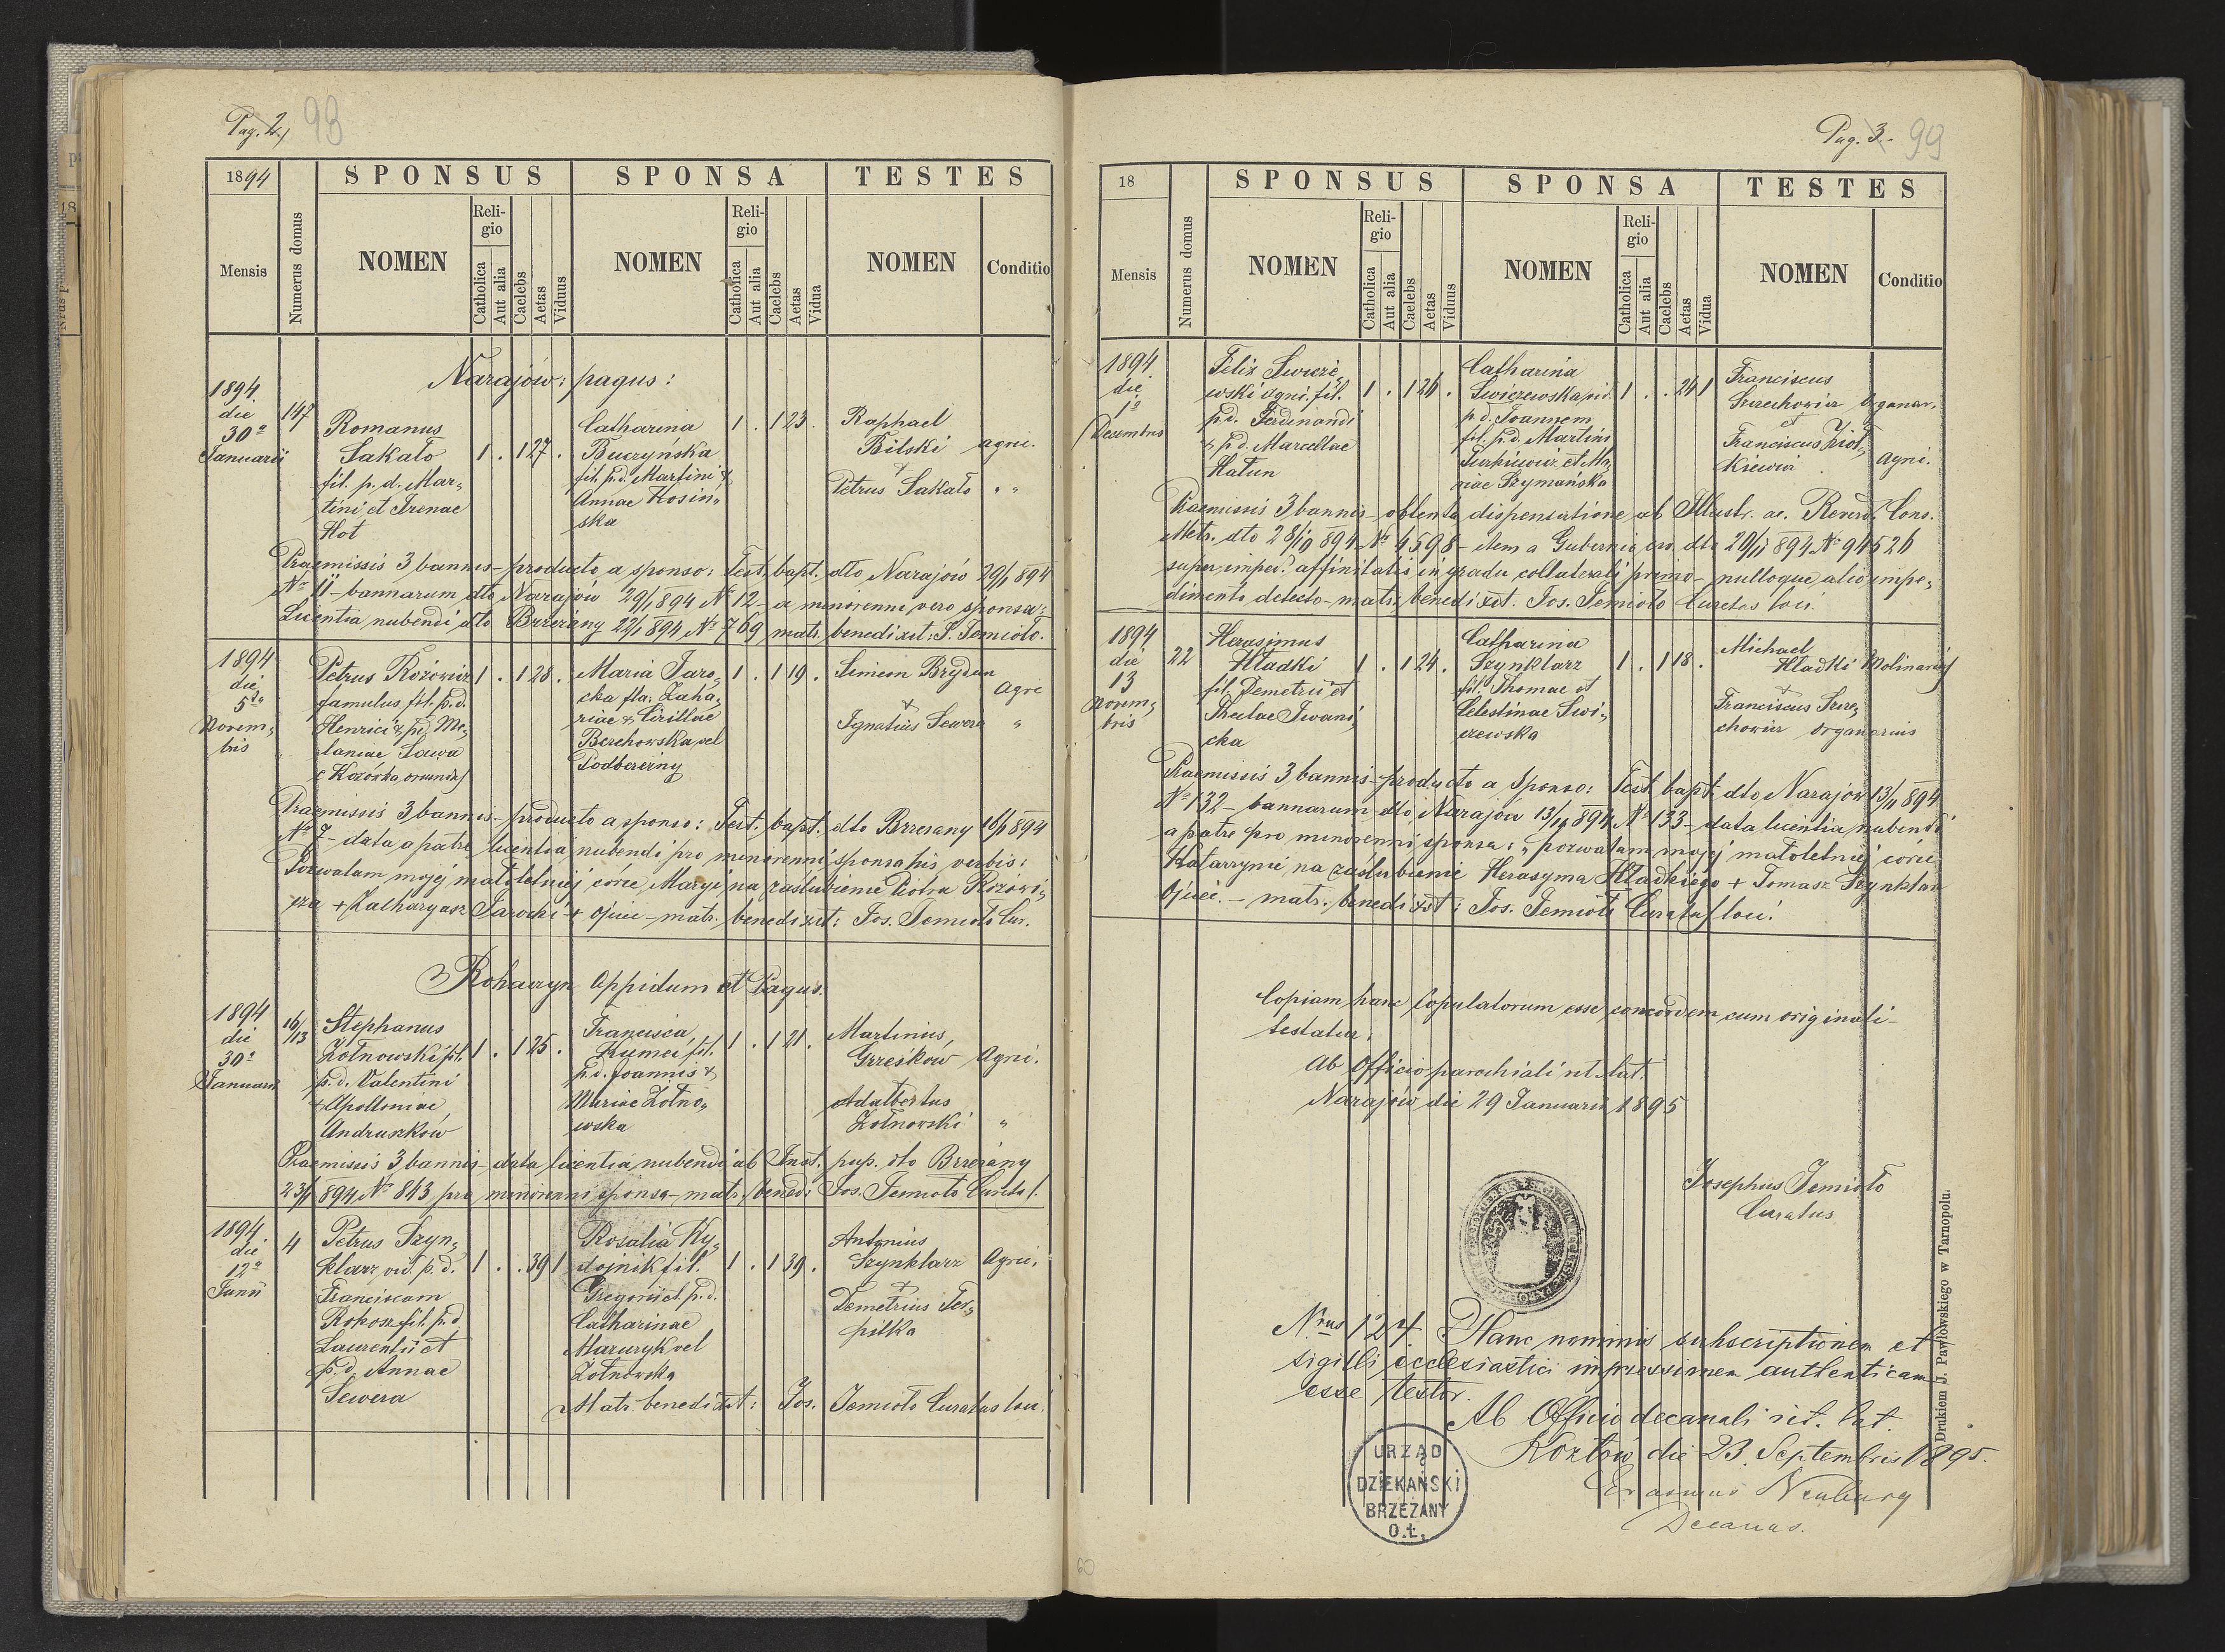 Pag. 2. 98
1894 SPONSUS SPONSA TESTES
Mensis Numerus domus NOMEN Religio Catholica Aut alia Caelebs Aetas Viduus NOMEN Religio Catholica Aut alia Caelebs Aetas Vidua NOMEN Conditio
Narajów: pagus:
1894 die 30a Januarii
147
Romanus
Sakało
fil. p. d. Mar„
tini et Irenae
Hot
1 . 1 27 .
Catharina
Buczyńska
fil. p.d. Martini &
Annae Kosin„
ska
1 . 1 23 .
Raphael
Bilski agric.
+
Petrus Sakało „ „
Praemissis 3 bannis – producto a sponso: Test. bapt. dto Narajów 29/1 894
No 11 – bannarum dto Narajów 29/1 894 No 12 – a minorenni vero sponsa:
Licentia nubendi dto Brzeżany 22/1 894 No 769 matr. benedixit: J. Jemioło.
1894
die
5ta
Novem„
bris
Petrus Rozowicz
famulus fil. p.d.
Henrici & p.d. Me„
laniae Sawa
e Kozówka oriundus
1 . 1 28 .
Maria Jaro„
cka fla. Zaha„
riae & Cirillae
Berehowska vel
Podberezny
1 . 1 19 .
Simeon Brydun
Agric
+
Ignatius Sewera „
Praemissis 3 bannis – producto a sponso: Test. bapt. dto Brzezany 16/1 894
No 7 – data a patre licentia nubendi pro minorenni sponsa his verbis:
Pozwalam mojej małoletniej córce Maryi na zaślubienie Piotra Rozowi„
cza + Zacharyasz Jarocki + Ojciec – matr. benedixit: Jos. Jemioło Cur.
Rohaczyn Oppidum et Pagus.
1894
die
30a
Januarii
16/13
Stephanus
Żołnowski fil.
p.d. Valentini
& Apolloniae
Andruszków
1 . 1 25 .
Francisca
Kumei fil.
p.d. Joannis &
Mariae Żołno„
wska
1 . 1 21 .
Martinus
Grześkow Agric.
Adalbertus
Żołnowski „
Praemissis 3 bannis – data licentia nubendi ab Inst. pup. dto Brzeżany
23/1 894 No 843 pro minorenni sponsa – matr. bened: Jos. Jemioło Curatus l.
1894
die
12a
Junii
4
Petrus Szyn„
klarz vid. p. d.
Franciscam
Rokosz fil. p.d
Laurentii et
p.d. Annae
Sewera
1 . . 39 1
Rosalia Ky„
dojnik fil.
Gregorii et p.d.
Catharinae
Mazuryk vel
Żołnowska
1 . 1 39 .
Antonius
Szynklarz Agric.
+
Demetrius Ter„
pilka
Matr. benedixit: Jos. Jemioło Curatus loci.
Pag. 3. 99
18 SPONSUS SPONSA TESTES
Mensis Numerus domus NOMEN Religio Catholica Aut alia Caelebs Aetas Viduus NOMEN Religio Catholica Aut alia Caelebs Aetas Vidua NOMEN Conditio
1894
die
1a
Decembris
Felix Swicze„
wski agric. fil.
p.d. Ferdinandi
& p.d. Marcellae
Hatun
1 . 1 26 .
Catharina
Swiczewska vid.
p.d. Joannem
fil. p.d. Martini
Turkiewicz et Ma„
riae Szymańska
1 . . 24 1
Franciscus
Szczechowicz Organar.
et
Franciscus Piot„
kiewicz Agric.
Praemissis 3 bannis – obtenta dispensatione ab Illustr. ac. Reverd. Cons.
Metr. dto 28/10 894 No 4598 – item a Gubernio dto 20/11 894 No 94526
super imped. affinitatis in gradu collaterali primo – nulloque alio impe„
dimento detecto – matr. benedixit. Jos. Jemioło Curatus loci.
1894
die
13
Novem„
bris
22
Herasimus
Hładki
fil. Demetrii et
Theclae Iwani„
cka
1 . 1 24 .
Catharina
Szynklarz
fil. Thomae et
Celestinae Swi„
czewska
1 . 1 18 .
Michael
Hładki Molinarius
+
Franciscus Szcze„
chowicz organarius
Praemissis 3 bannis – producto a Sponso: Test bapt. dto Narajow 13/11 894
No 132 – bannarum dto Narajów 13/11 894 No 133 – data licentia nubendi
a patre pro minorenni sponsa: „pozwalam mojej małoletniej córce
Katarzynie na zaślubienie Herasyma Hładkiego + Tomasz Szynklarz
Ojciec. – matr. benedixit: Jos. Jemioło Curatus loci.
Copiam hanc Copulatorum esse concordem cum originali –
testatur.
Ab Officio parochiali rit. lat.
Narajów die 29 Januarii 1895
Josephus Jemioło
Curatus
Nrus 124. Hanc nominis subscriptionem et
sigilli ecclesiastici impressionem authenticam
esse testor.
Ab Officio decanali rit. lat.
Kozłów die 23. Septembris 1895.
Erasmus Neuburg
Decanus.
URZĄD
DZIEKAŃSKI
BRZEŻANY
O.Ł.
Drukiem J. Pawłowskiego w Tarnopolu.
60